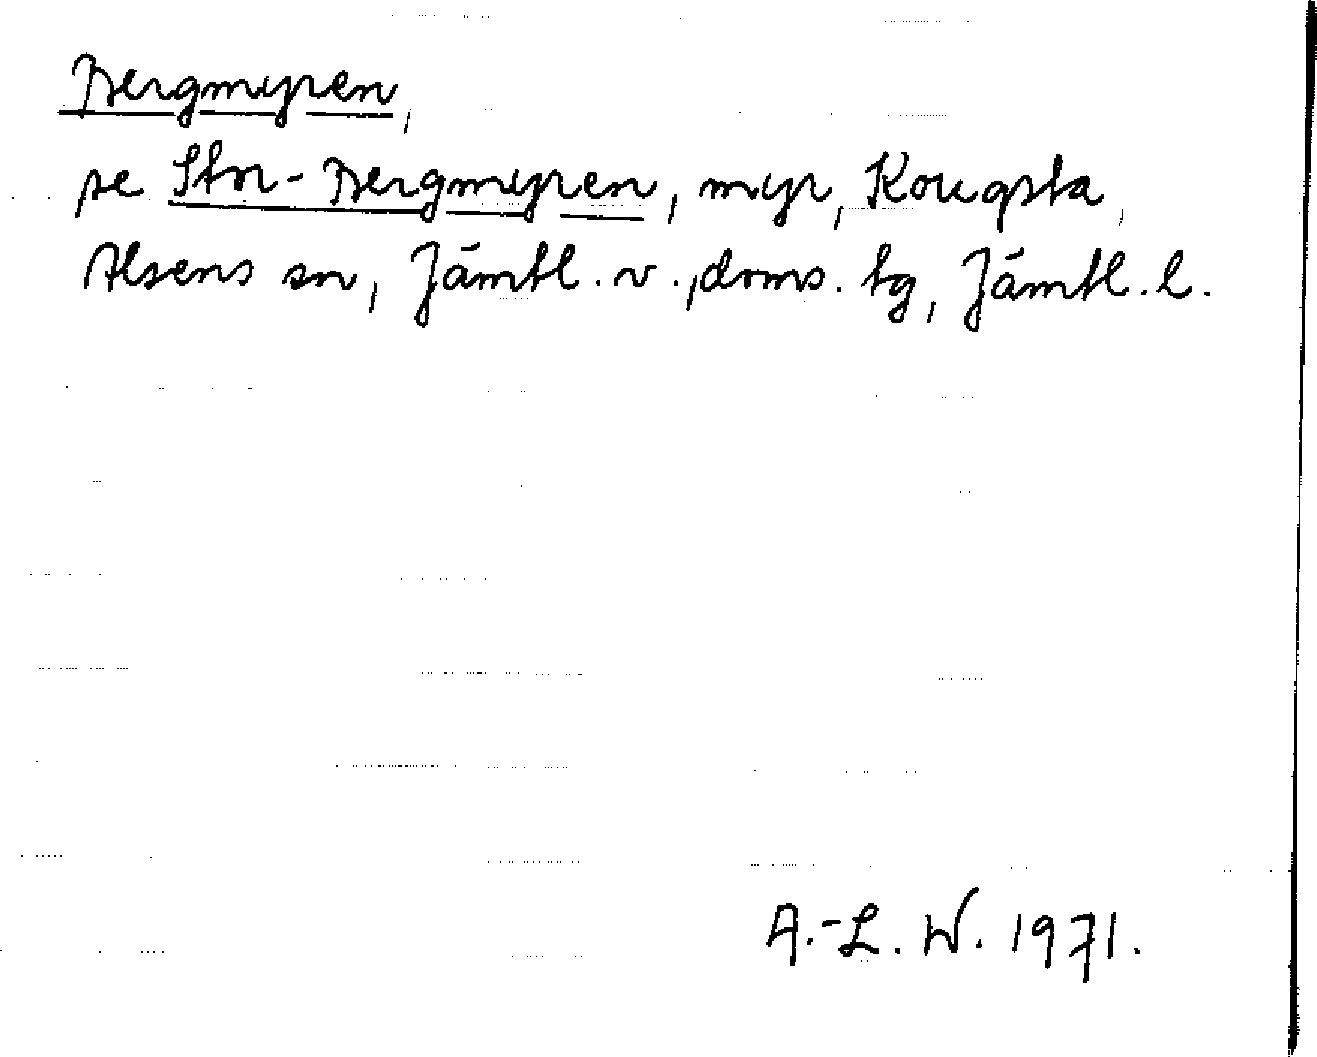 Bergmyren,
se Stor-Bergmyren, myr, Kougsta,
Alsens sn, Jämtl. v., doms. tg, Jämtl. l.
A.-L. W. 1971.